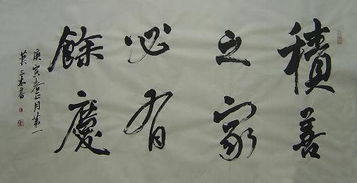 積善
之家
必有
餘慶
庚寅年正月第一